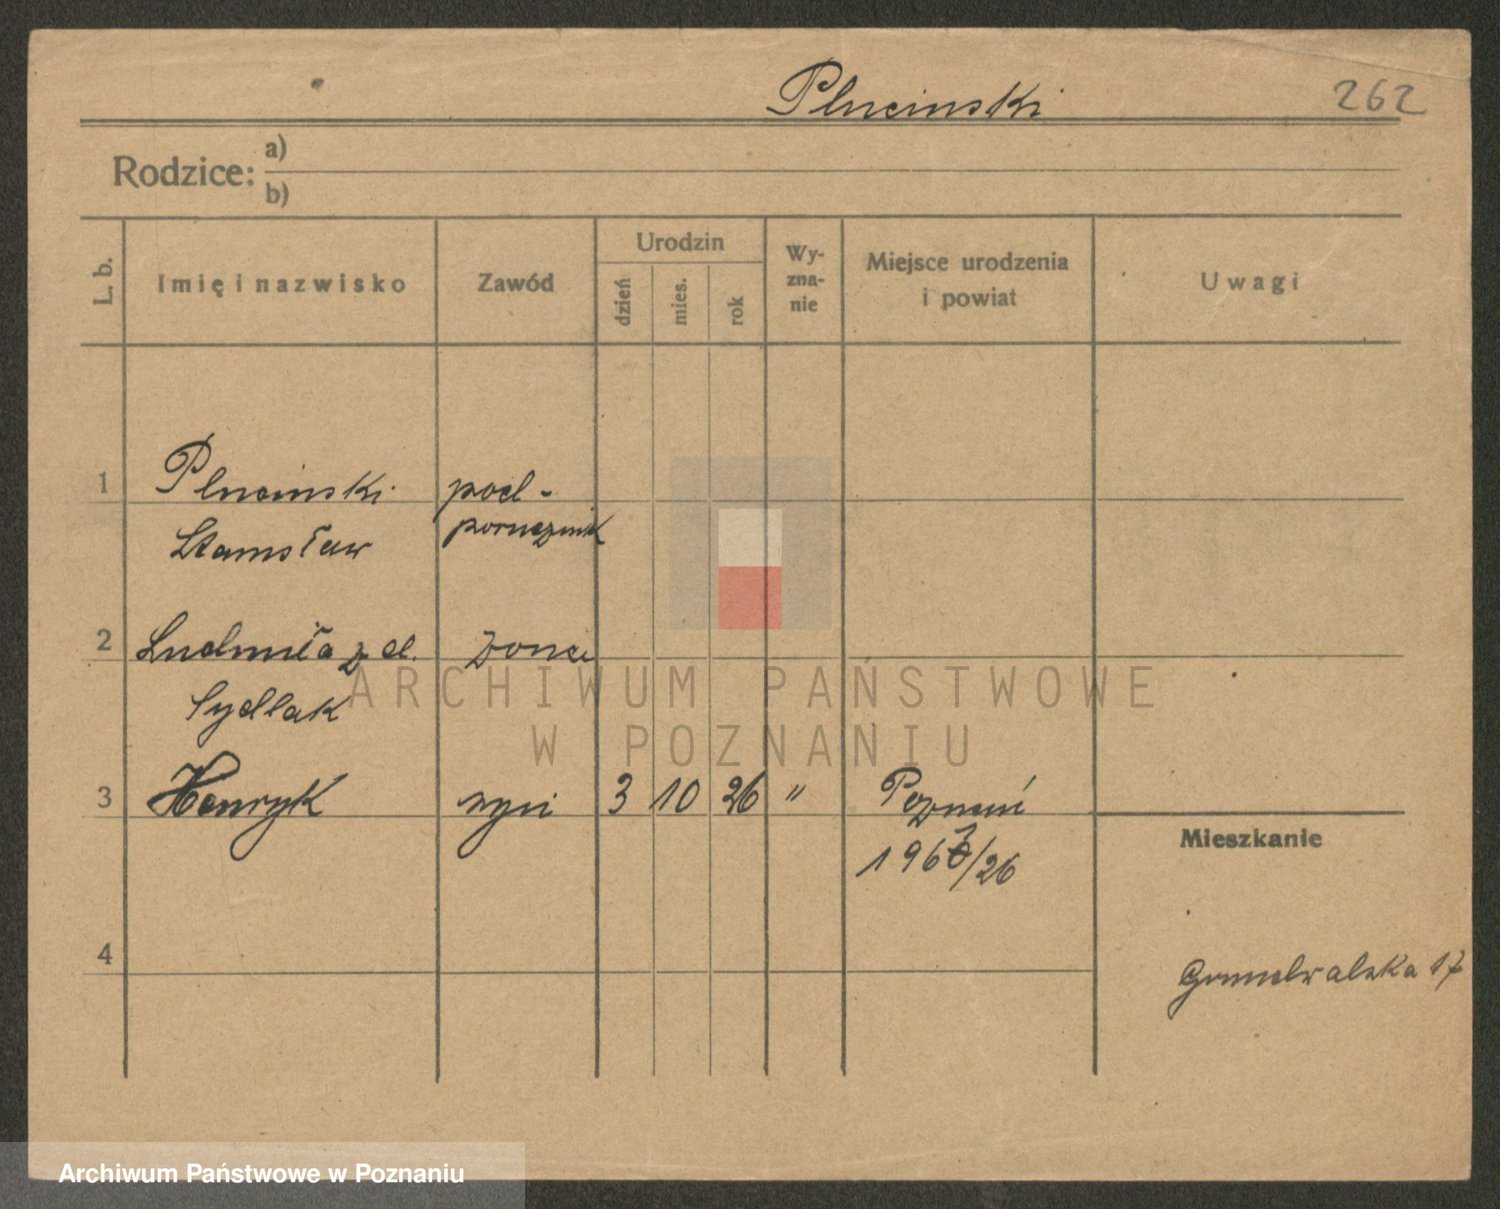 Plucinski 262
Rodzice: a)
b)
L. b.
Imię i nazwisko
Zawód
Urodzin
dzień
mies.
rok
Wy-
zna-
nie
Miejsce urodzenia
i powiat
Uwagi
1 Plucinski pod-
Stanisław porucznik
2 Ludmiła z d. żona
Sydlak
3 Henryk syn 3 10 26 " Poznań
/26
Mieszkanie
4
Grunwalzka 17
ARCHIWUM PAŃSTWOWE
W POZNANIU
Archiwum Państwowe w Poznaniu